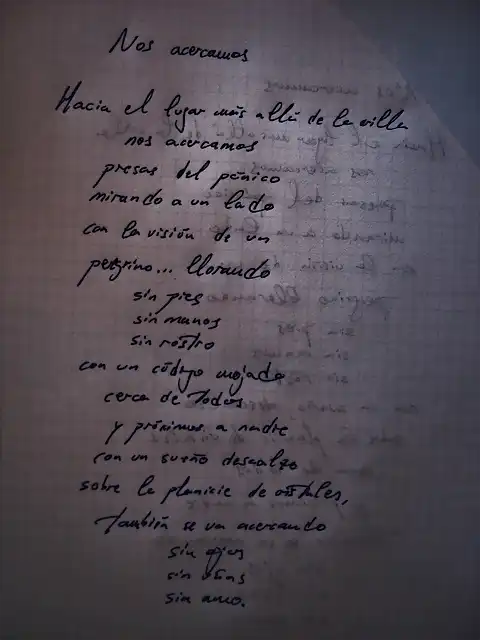 Nos acercamos
Hacia el lugar más allá de la villa
nos acercamos
presas del pánico
mirando a un lado
con la visión de un
peregrino... llorando
sin pies
sin manos
sin rostro
con un código mojado
cerca de todos
y próximos a nadie
con un sueño descalzo
sobre la planicie de cristales,
también se va acercando
sin ojos
sin uñas
sin amo.